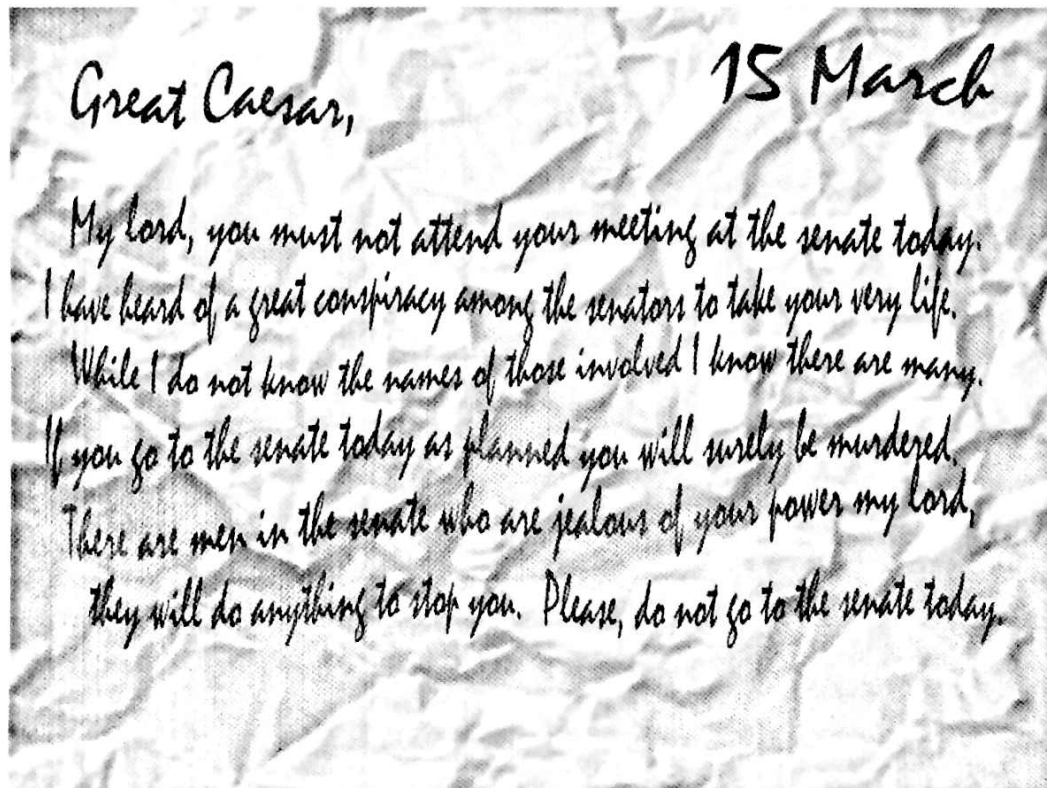 Great Caesar, 15 March
My lord, you must not attend your meeting at the senate today.
I have heard of a great conspiracy among the senators to take your very life.
While I do not know the names of those involved I know there are many.
If you go to the senate today as planned you will surely be murdered.
There are men in the senate who are jealous of your power my lord,
they will do anything to stop you. Please, do not go to the senate today.